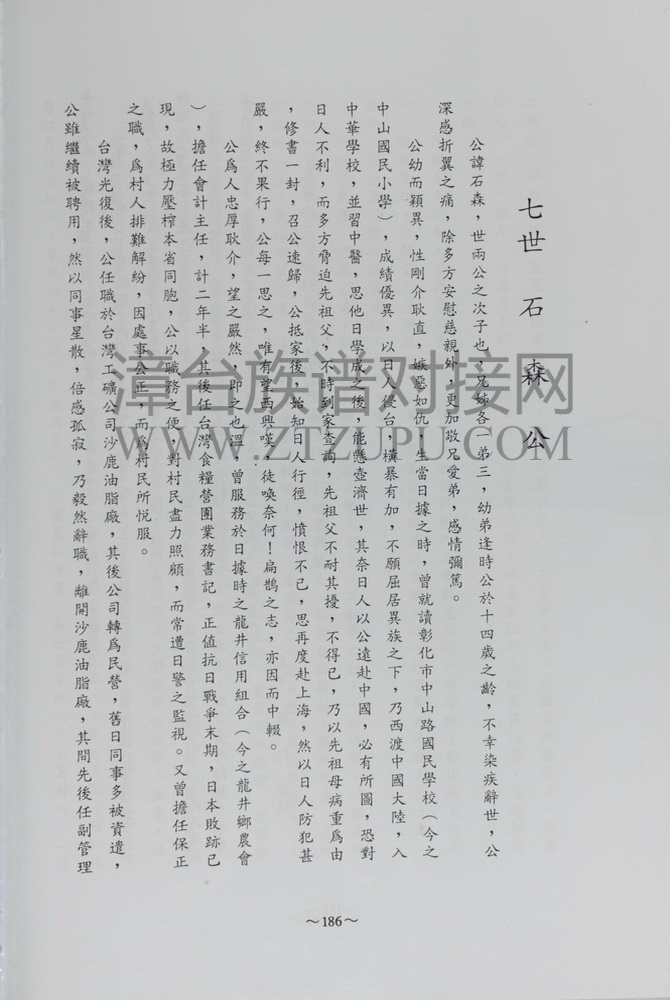 七世石森公
公諱石森，世兩公之次子也，兄姊各一弟三，幼弟逢時公於十四歲之齡，不幸染疾辭世，公
深感折翼之痛，除多方安慰慈親外，更加敬兄愛弟，感情彌篤。
公幼而穎異，性剛介耿直，嫉惡如仇，生當日據之時，曾就讀彰化市中山路國民學校（今之
中山國民小學），成績優異，以日人侵台，橫暴有加，不願屈居異族之下，乃西渡中國大陸，入
中華學校，並習中醫，思他日學成之後，能懸壺濟世，其奈日人以公遠赴中國，必有所圖，恐對
日人不利，而多方脅迫先祖父，不時到家查詢，先祖父不耐其擾，不得已，乃以先祖母病重為由
，修書一封，召公速歸，公抵家後，始知日人行徑，憤恨不已，思再度赴上海，然以日人防犯甚
嚴，終不果行，公每一思之，唯有望西興嘆，徒喚奈何！扁鵲之志，亦因而中輟。
公爲人忠厚耿介，望之嚴然，即之也溫，曾服務於日據時之龍井信用組合（今之龍井鄉農會
），擔任會計主任，計二年半，其後任台灣食糧營團業務書記，正值抗日戰爭末期，日本敗跡已
現，故極力壓榨本省同胞，公以職務之便，對村民盡力照顧，而常遭日警之監視。又曾擔任保正
之職，爲村人排難解紛，因處事公正，而爲村民所悅服。
台灣光復後，公任職於台灣工礦公司沙鹿油脂廠，其後公司轉爲民營，舊日同事多被資遣，
公雖繼續被聘用，然以同事星散，倍感孤寂，乃毅然辭職，離開沙鹿油脂廠，其間先後任副管理
～186～
漳台族谱对接网
WWW.ZTZUPU.COM